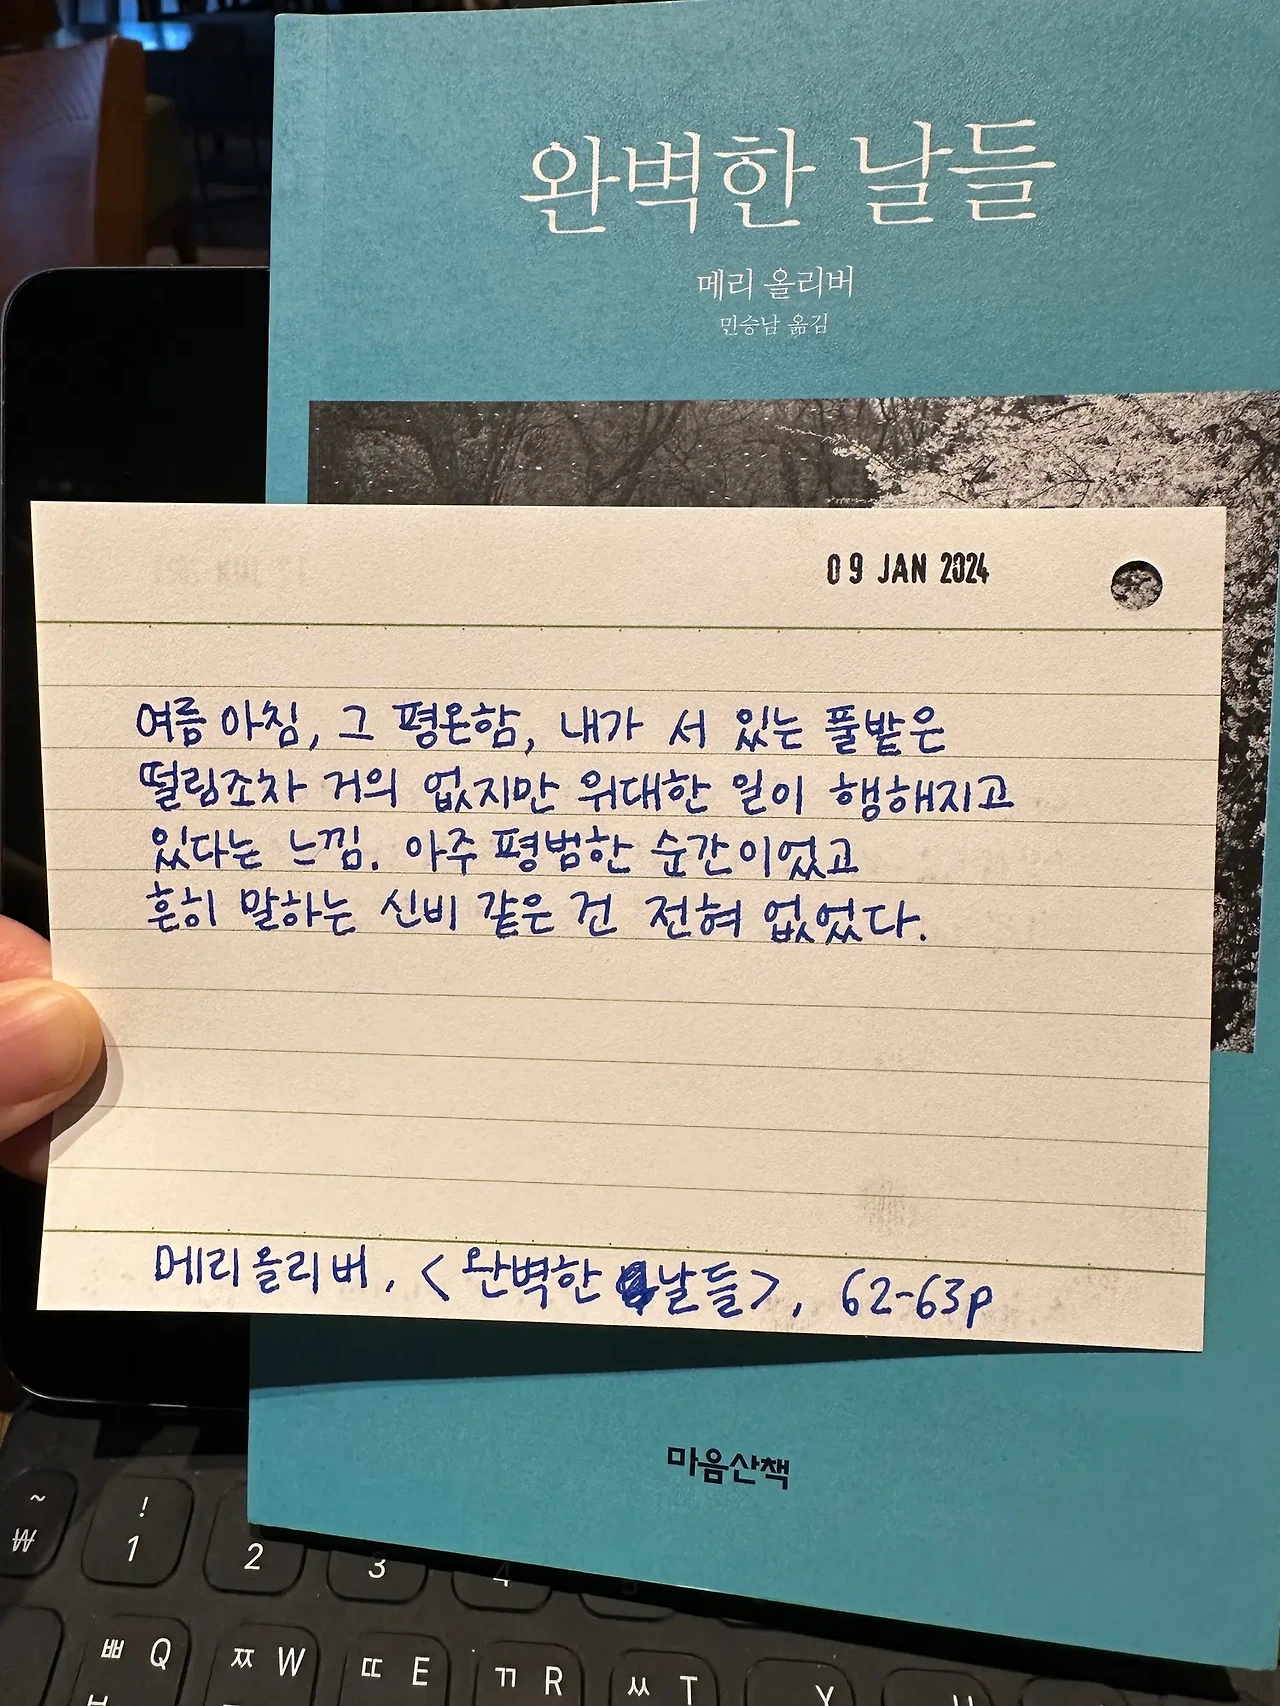 완벽한 날들
메리 올리버
민승남 옮김
09 JAN 2024
여름 아침, 그 평온함, 내가 서 있는 풀밭은
떨림조차 거의 없지만 위대한 일이 행해지고
있다는 느낌. 아주 평범한 순간이었고
흔히 말하는 신비 같은 건 전혀 없었다.
메리 올리버, <완벽한 날들>, 62-63p
마음산책
~ !
₩ 1 2 3 4
ㅃ Q ㅉ W ㄸ E ㄲ R ㅆ T Y